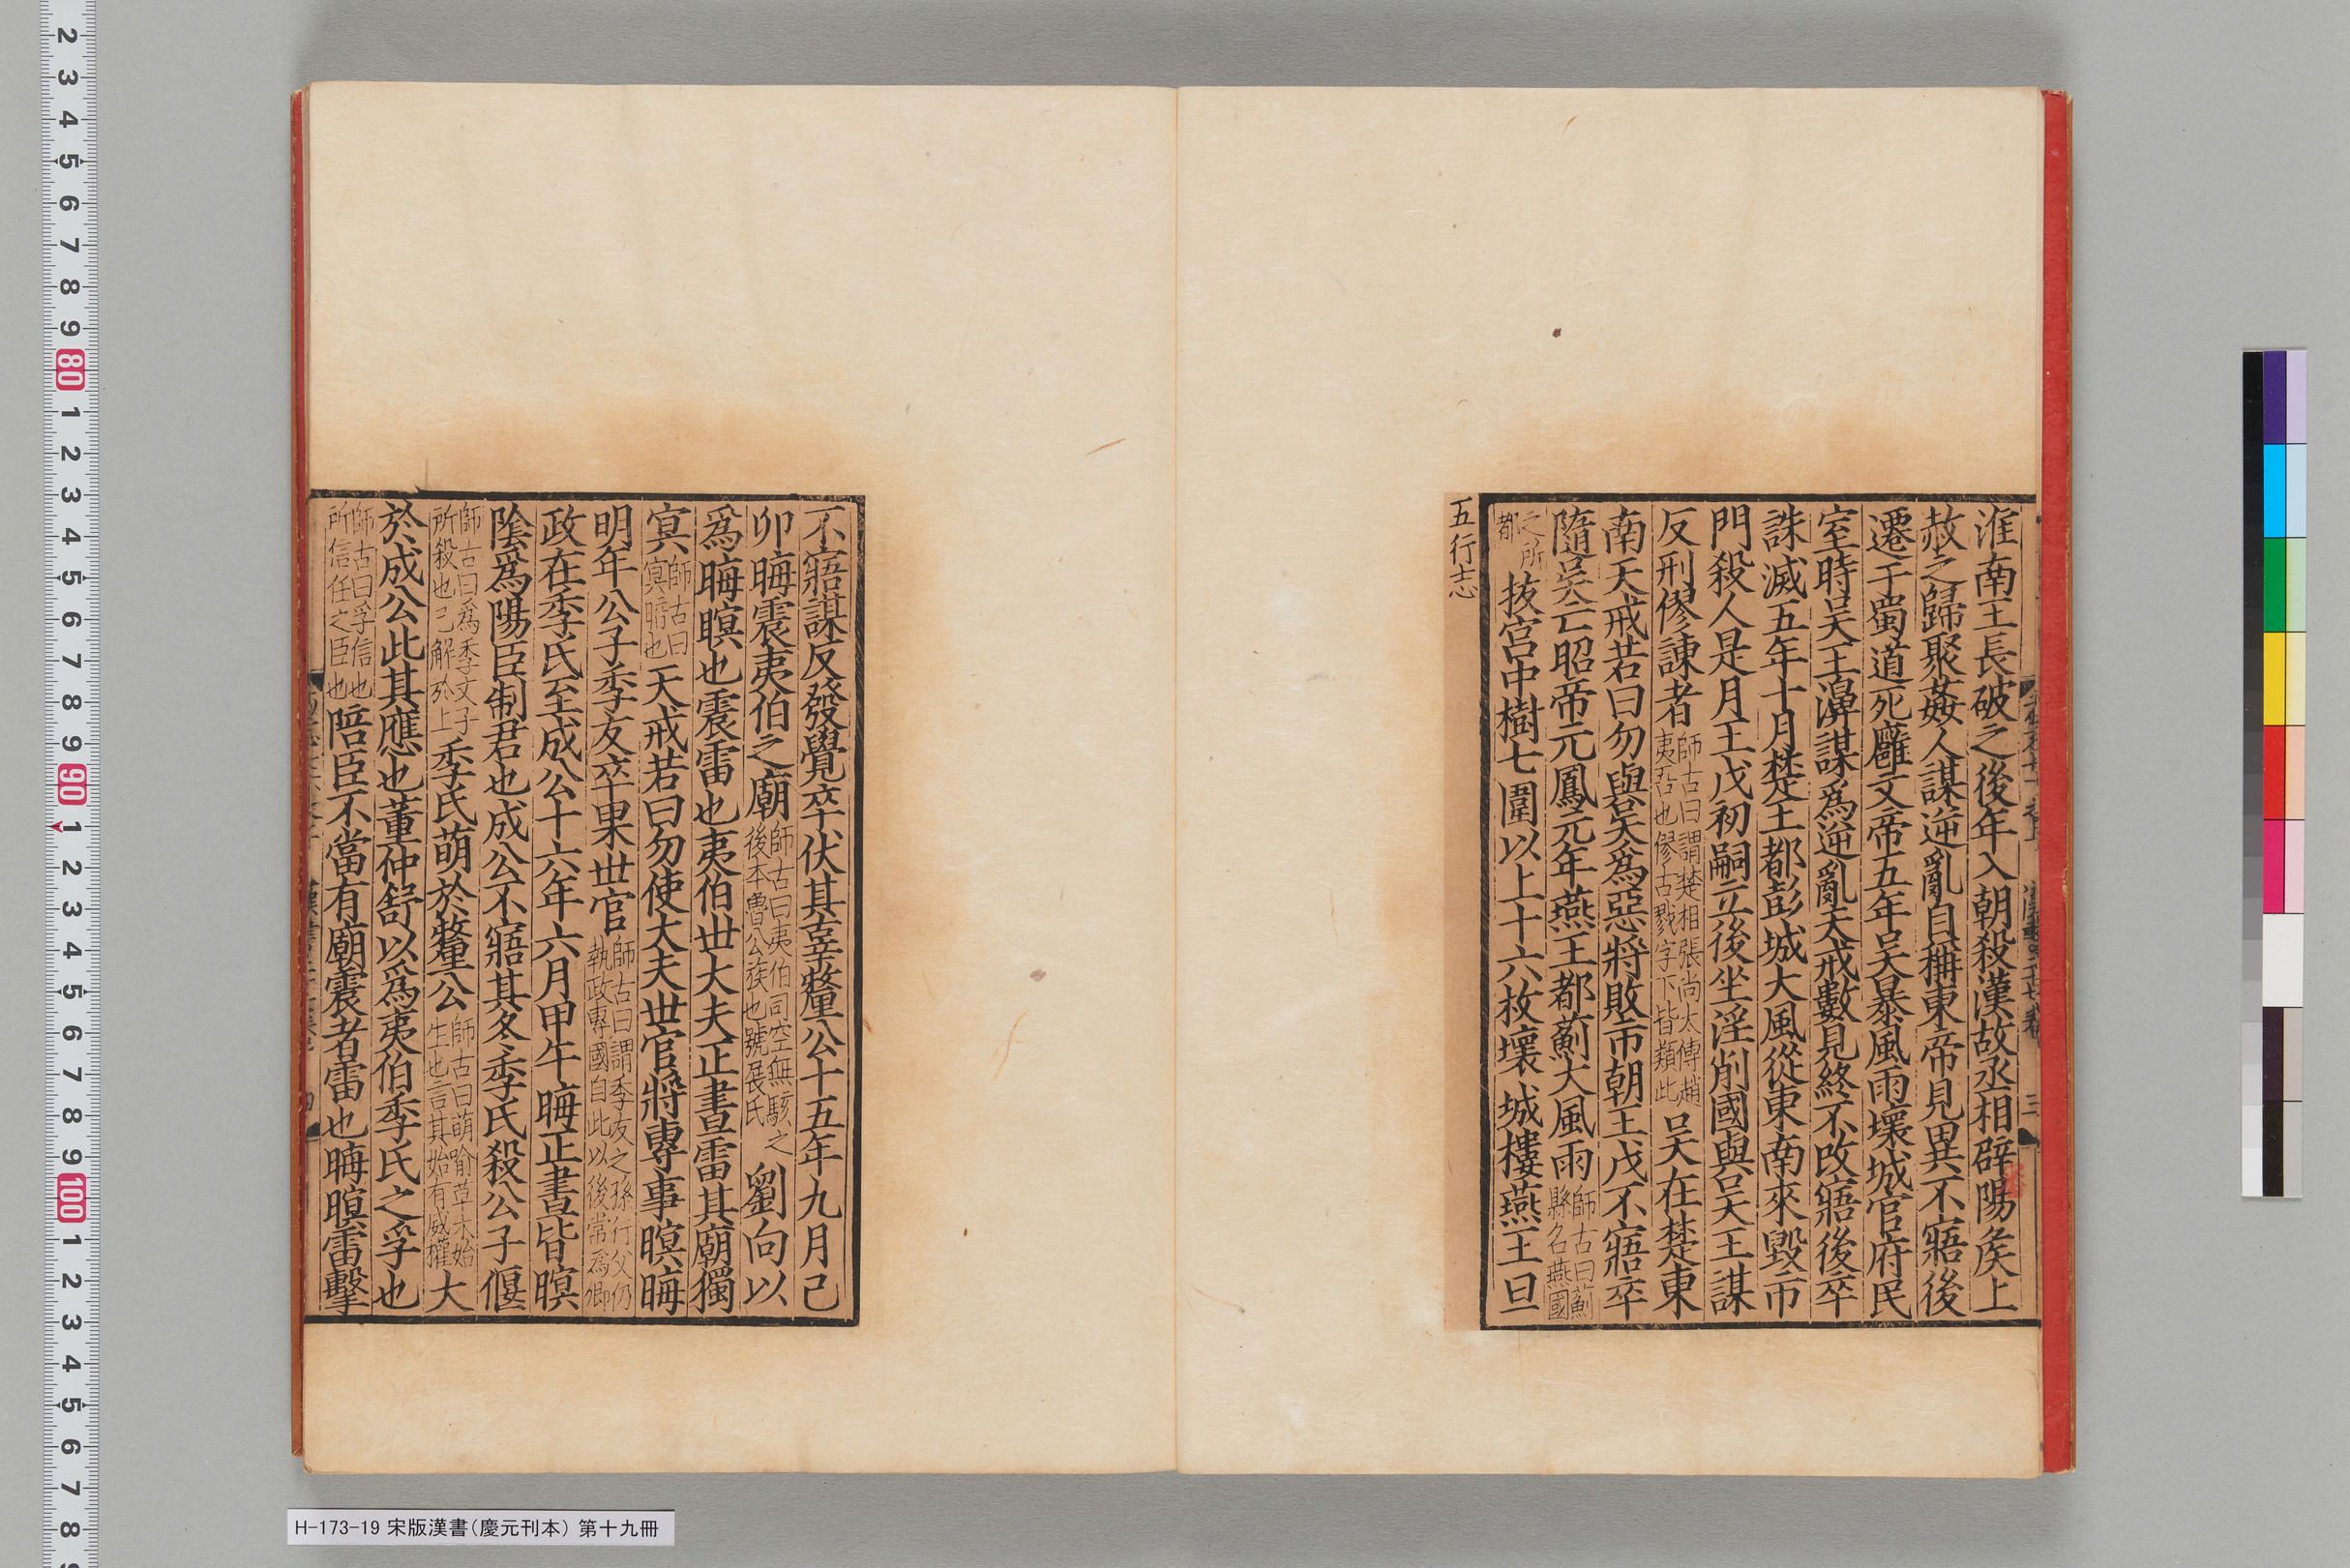 淮南王長破之後年入朝殺漢故丞相辟陽矦上
赦之歸聚姦人謀逆亂自稱東帝見異不寤後
遷于蜀道死廱文帝五年吳暴風雨壞城官府民
室時吳王濞謀爲逆亂天戒數見終不改寤後卒
誅滅五年十月楚王都彭城大風從東南來毀市
門殺人是月王戊初嗣立後坐淫削國與吳王謀
反刑僇諫者師古曰謂楚相張尚太傅趙夷吾也僇古戮字下皆類此吳在楚東
南天戒若曰勿與吳爲惡將敗市朝王戊不寤卒
隨吳亡昭帝元鳳元年燕王都薊大風雨師古曰薊縣名燕國
之所都拔宮中樹七圍以上十六枚壞城樓燕王旦
五行志
不寤謀反發覺卒伏其辜釐公十五年九月己
卯晦震夷伯之廟師古曰夷伯司空無駭之後本魯公族也號展氏劉向以
爲晦暝也震雷也夷伯世大夫正晝雷其廟獨
冥師古曰冥暗也天戒若曰勿使大夫世官將專事暝晦
明年公子季友卒果世官師古曰謂季友之孫行父仍執政專國自此以後常爲卿
政在季氏至成公十六年六月甲午晦正晝皆暝
陰爲陽臣制君也成公不寤其冬季氏殺公子偃
師古曰爲季文子所殺也已解於上季氏萌於釐公師古曰萌喻草木始生也言其始有威權大
於成公此其應也董仲舒以爲夷伯季氏之孚也
師古曰孚信也所信任之臣也陪臣不當有廟震者雷也晦暝雷擊
H-173-19 宋版漢書(慶元刊本) 第十九冊
2 3 4 5 6 7 8 9 80 1 2 3 4 5 6 7 8 9 90 1 2 3 4 5 6 7 8 9 100 1 2 3 4 5 6 7 8